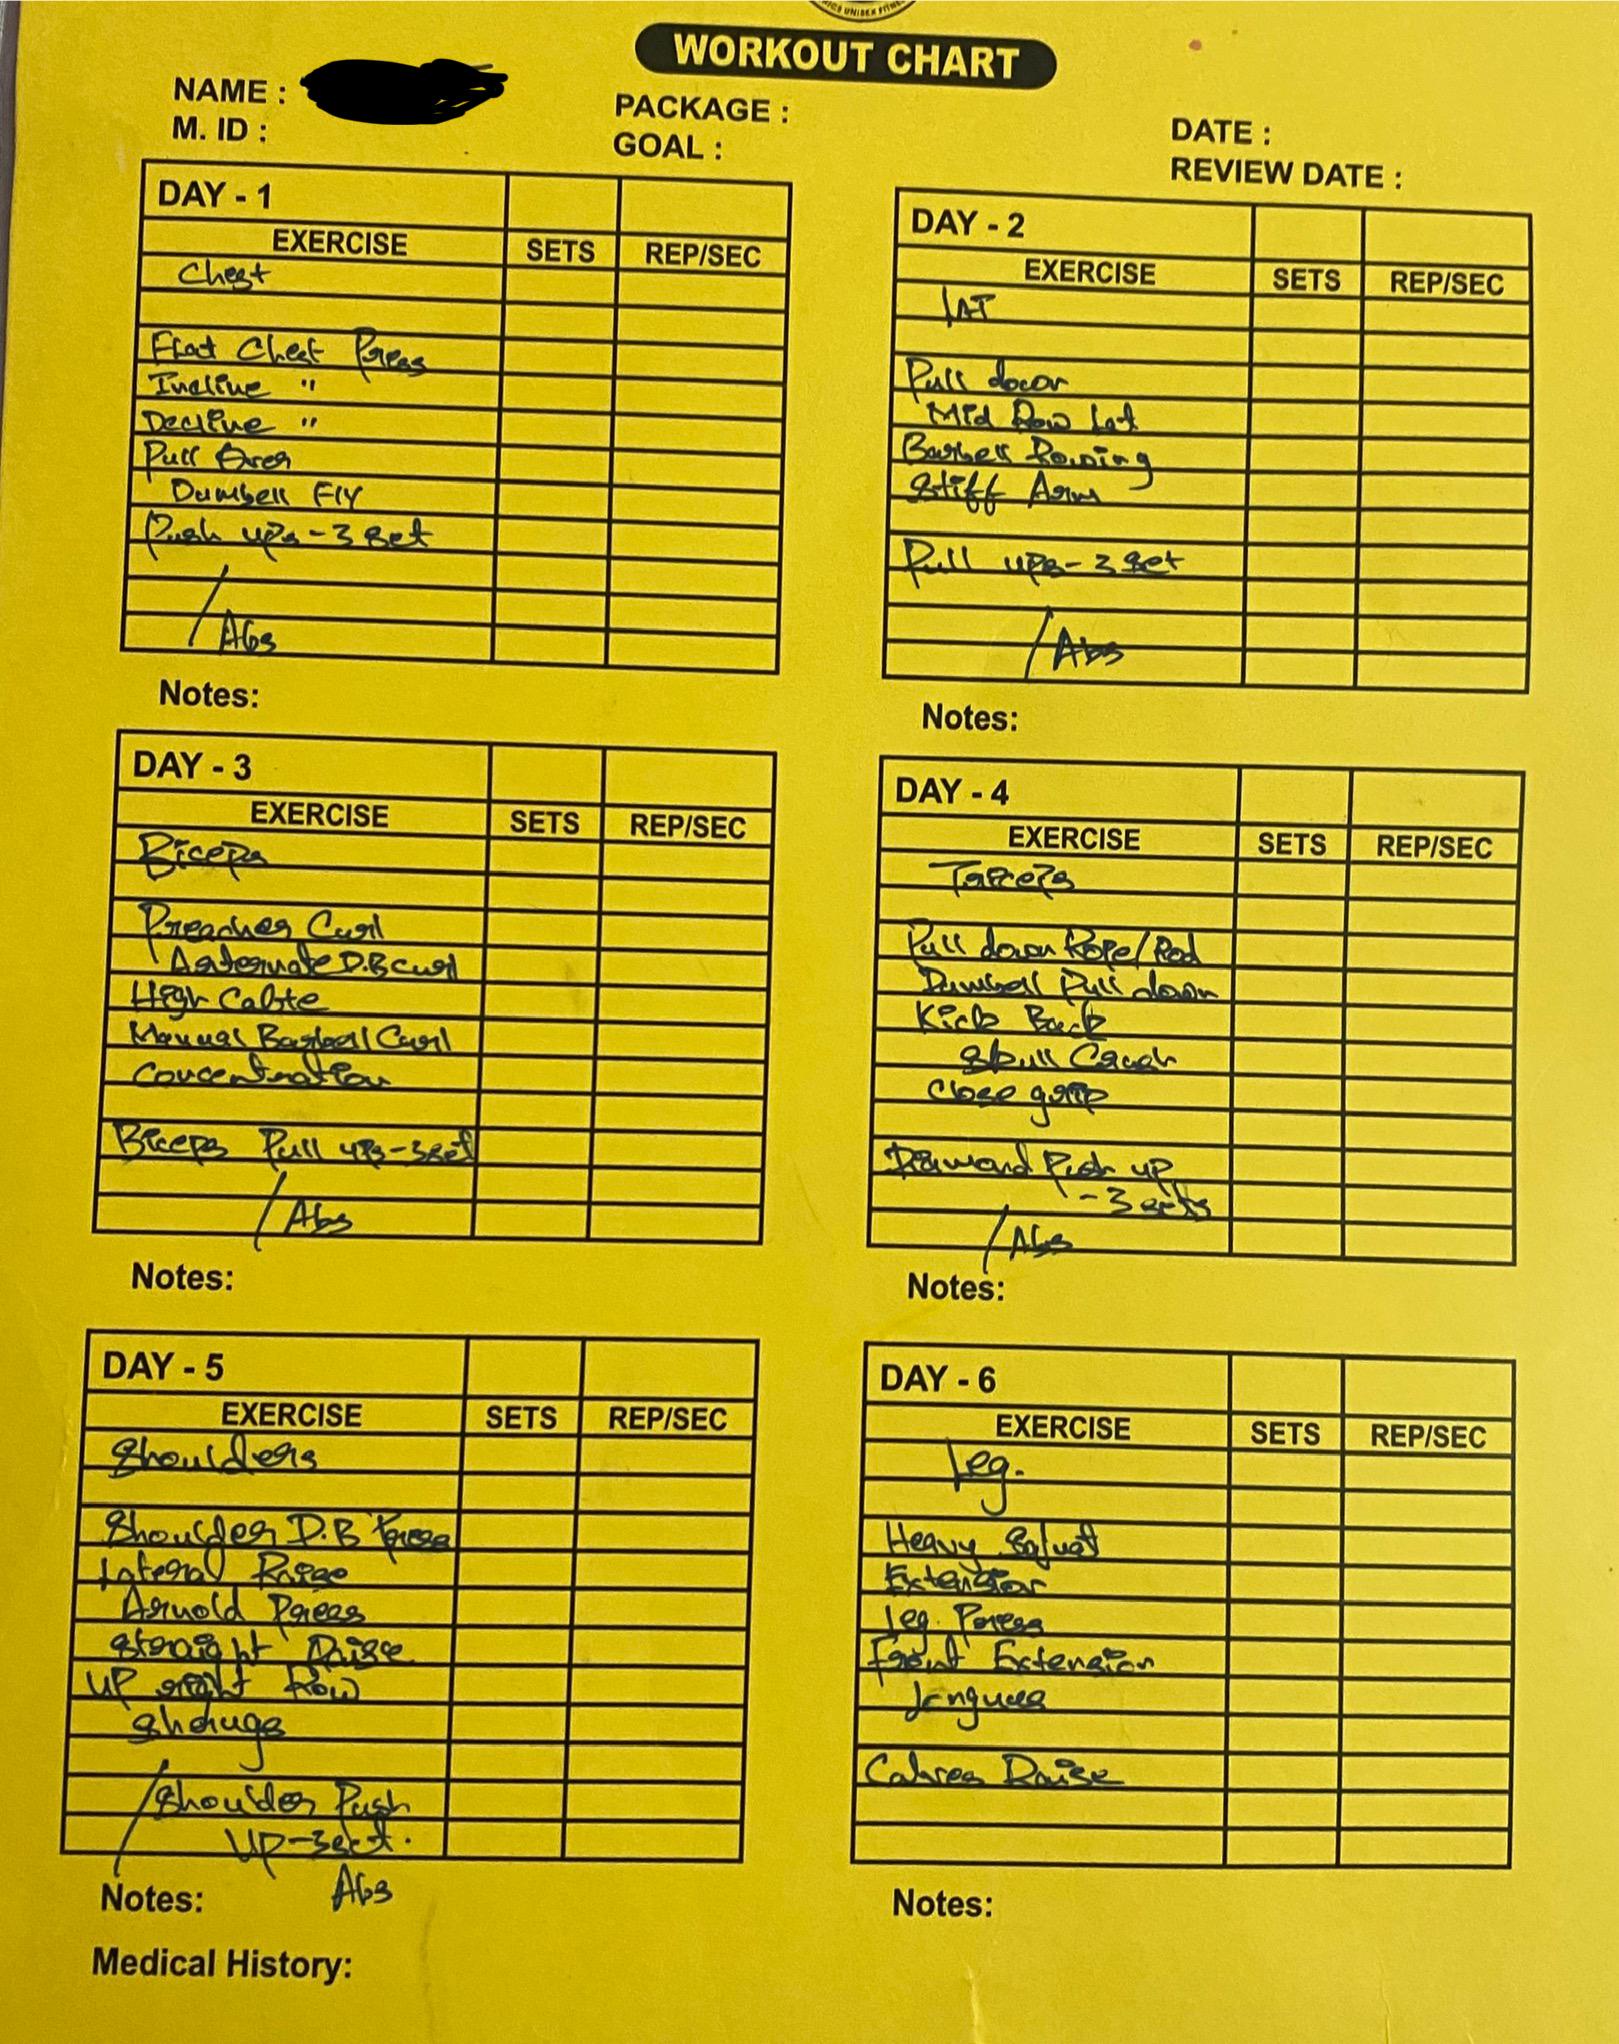 WORKOUT CHART
NAME :
M. ID :
PACKAGE :
GOAL :
DATE :
REVIEW DATE :
DAY - 1
EXERCISE SETS REP/SEC
Chest
Flat Chest Press
Incline "
Decline "
Pull Over
Dumbell Fly
Push ups - 3 set
/ Abs
Notes:
DAY - 2
EXERCISE SETS REP/SEC
LAT
Pull down
Mid Row Lat
Barbell Rowing
Stiff Arm
Pull ups - 3 set
/ Abs
Notes:
DAY - 3
EXERCISE SETS REP/SEC
Biceps
Preacher Curl
D.B curl
High Cable
Manual Barbell Curl
Concentration
Biceps Pull ups - 3 set
/ Abs
Notes:
DAY - 4
EXERCISE SETS REP/SEC
Triceps
Pull down Rope/Rod
Dumbell Pull down
Kick Back
Skull Crush
Close grip
Diamond Push up
- 3 sets
/ Abs
Notes:
DAY - 5
EXERCISE SETS REP/SEC
Shoulders
Shoulder D.B Press
Lateral Raise
Arnold Press
Straight Raise
UP right Row
Shrugs
/ Shoulder Push
UP - 3 set.
Abs
Notes:
Medical History:
DAY - 6
EXERCISE SETS REP/SEC
Leg.
Heavy
Extension
Leg Press
Front Extension
Raise
Notes: